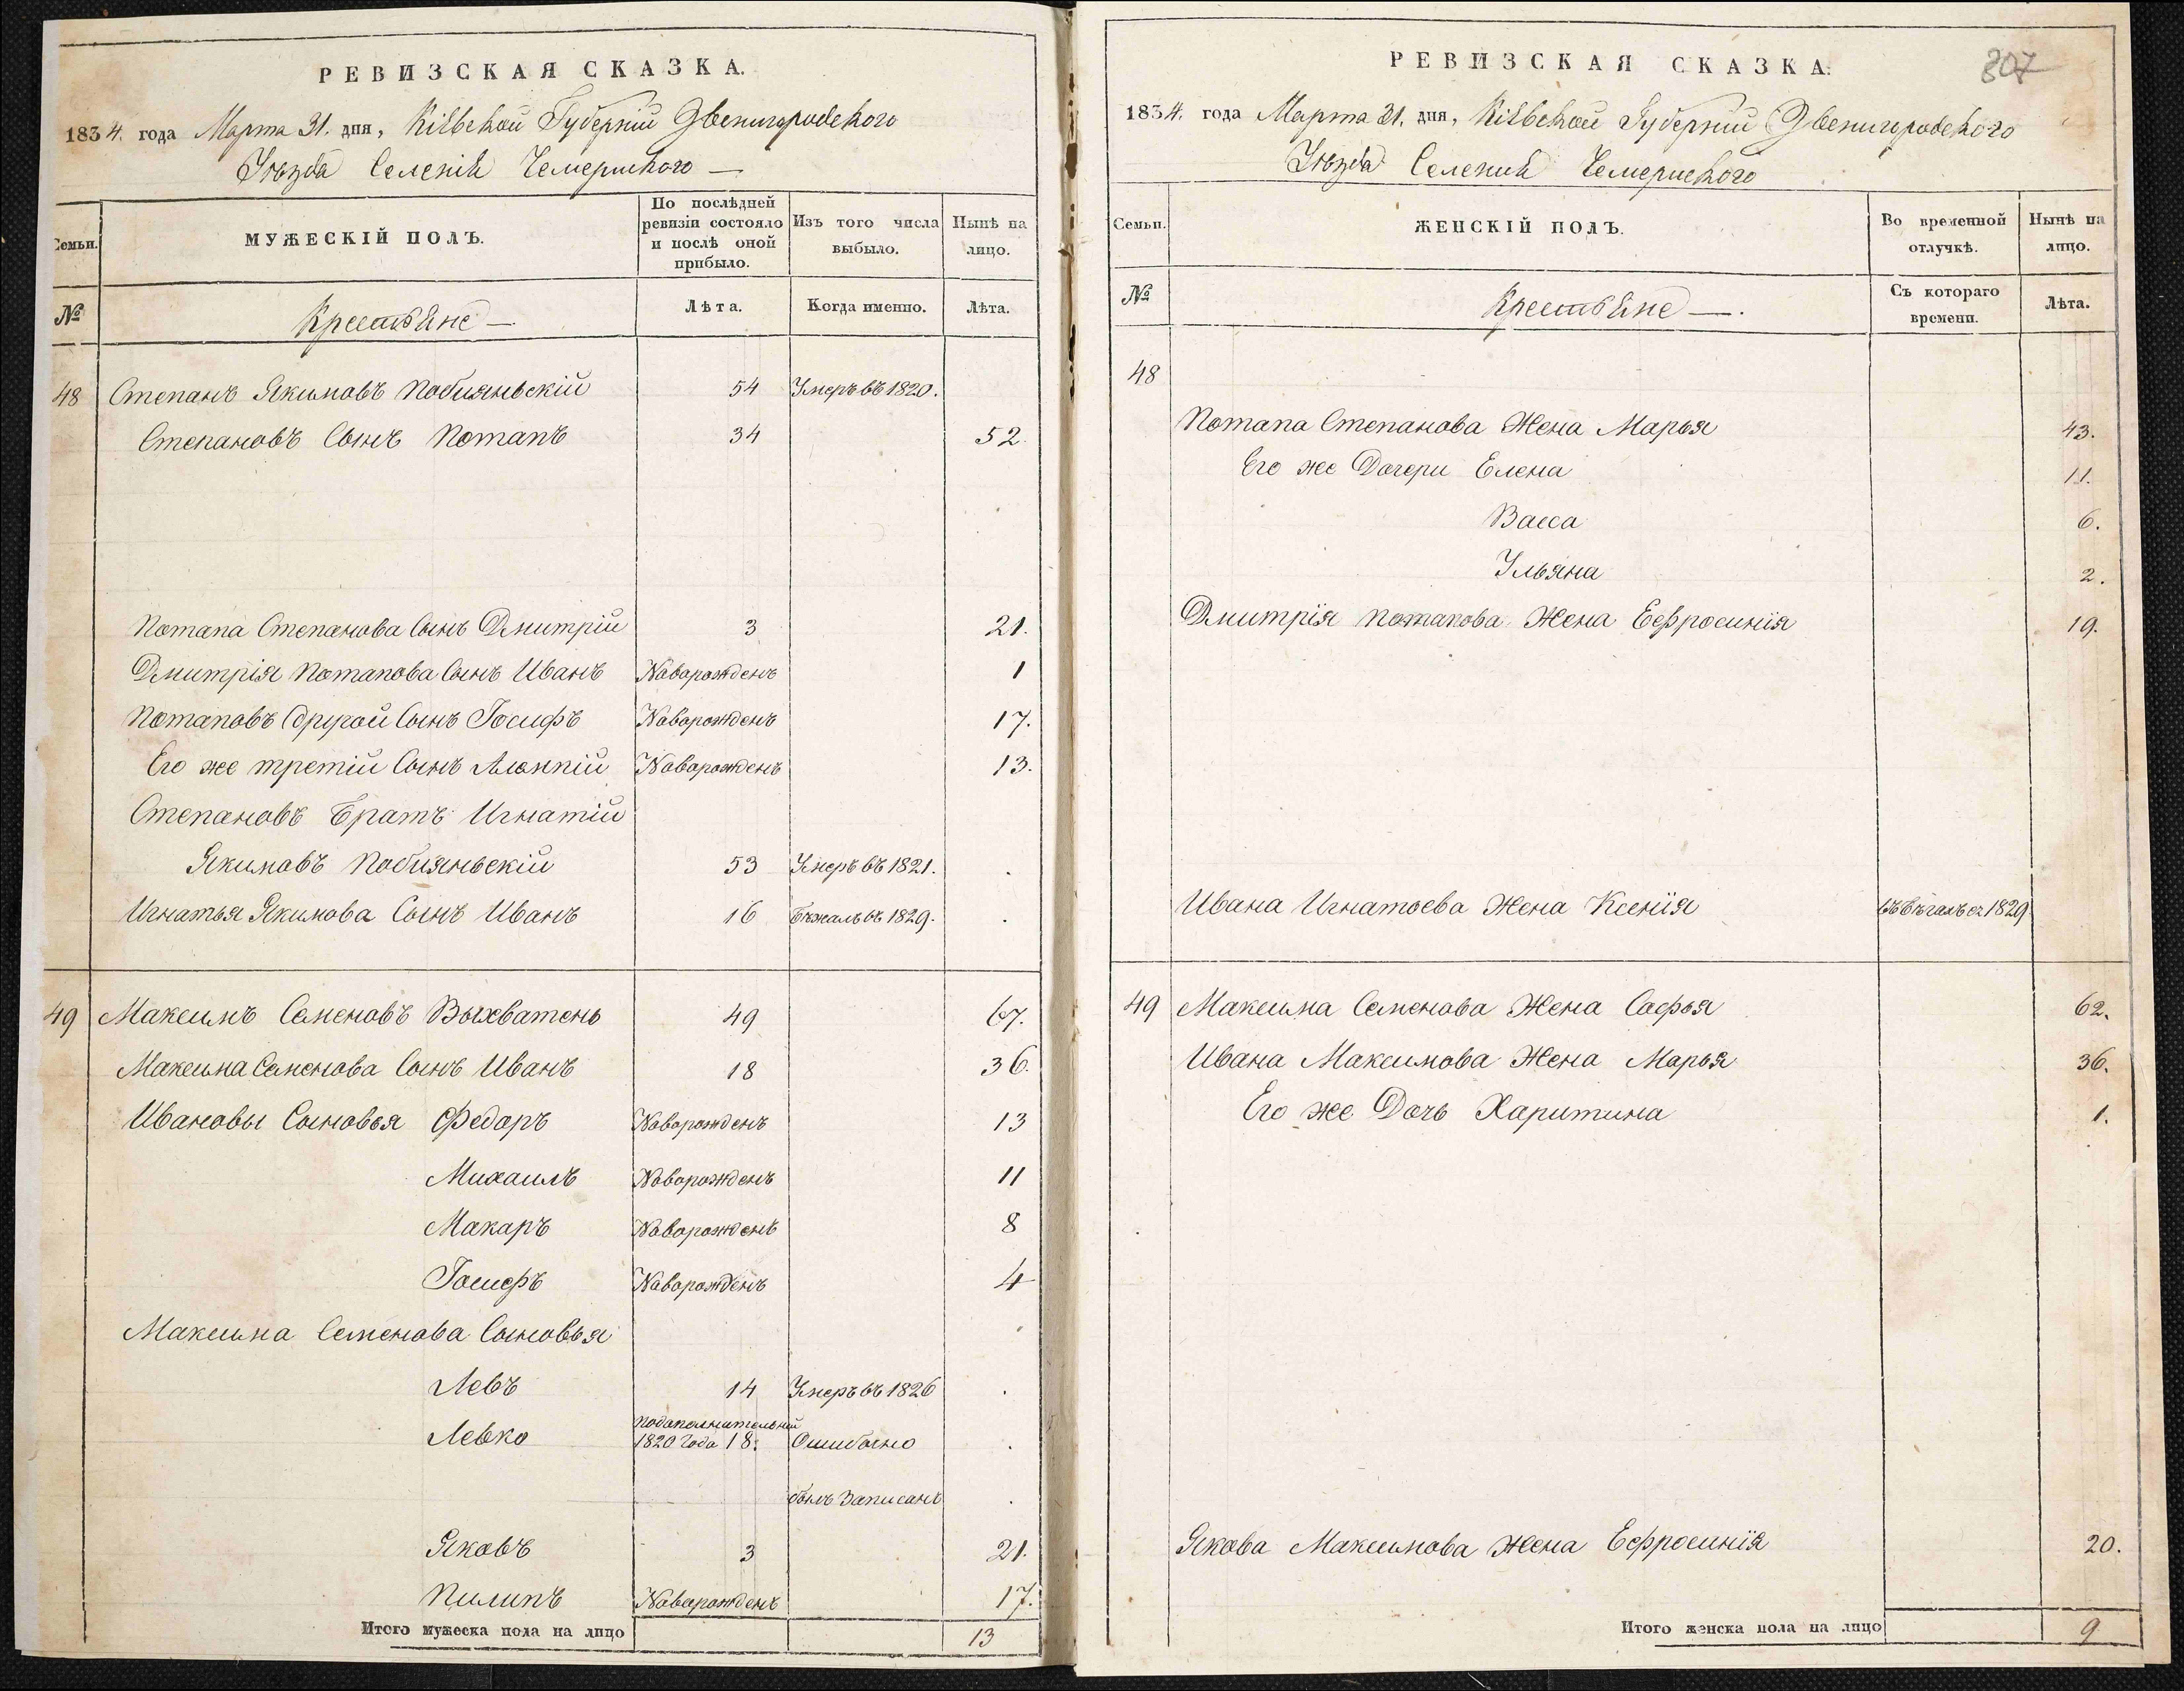 РЕВИЗСКАЯ СКАЗКА.
1834. года Марта 31. дня, Кіевской Губерніи Звенигородского
Уѣзда Селенія Чемериского —
Семьи.
МУЖЕСКІЙ ПОЛЪ.
По послѣдней ревизіи состояло и послѣ оной прибыло.
Изъ того числа выбыло.
Нынѣ на лицо.
№
Крестьяне —
Лѣта.
Когда именно.
Лѣта.
48 Степанъ Якимовъ Побияньскій 54 Умеръ въ 1820.
Степановъ Сынъ Потапъ 34 52.
Потапа Степанова Сынъ Дмитрій 3 21.
Дмитрія Потапова Сынъ Иванъ Новорожденъ 1
Потаповъ другой Сынъ Іосифъ Новорожденъ 17.
Его же третій Сынъ Новорожденъ 13.
Степановъ Братъ Игнатій
Якимовъ Побияньскій 53 Умеръ въ 1821.
Игнатья Якимова Сынъ Иванъ 16 Бѣжалъ въ 1829.
49 Максимъ Семеновъ Выхватень 49 67.
Максима Семенова Сынъ Иванъ 18 36.
Ивановы Сыновья Федоръ Новорожденъ 13
Михаилъ Новорожденъ 11
Макаръ Новорожденъ 8
Іосифъ Новорожденъ 4
Максима Семенова Сыновья
Левъ 14 Умеръ въ 1826
Левко 1820 года 18. Ошибочно
былъ Записанъ
Яковъ 3 21.
Пилипъ Новорожденъ 17.
Итого мужеска пола на лицо 13
807
РЕВИЗСКАЯ СКАЗКА.
1834. года Марта 31. дня, Кіевской Губерніи Звенигородского
Уѣзда Селенія Чемериского
Семьи.
ЖЕНСКІЙ ПОЛЪ.
Во временной отлучкѣ.
Нынѣ на лицо.
№
Крестьяне —.
Съ котораго времени.
Лѣта.
48
Потапа Степанова Жена Марья 43.
Его же Дочери Елена 11.
Васса 6.
Ульяна 2.
Дмитрія Потапова Жена Ефросинія 19.
Ивана Игнатьева Жена Ксенія въ бѣгахъ съ 1829.
49 Максима Семенова Жена Софья 62.
Ивана Максимова Жена Марья 36.
Его же Дочь Харитина 1.
Якова Максимова Жена Ефросинія 20.
Итого женска пола на лицо 9